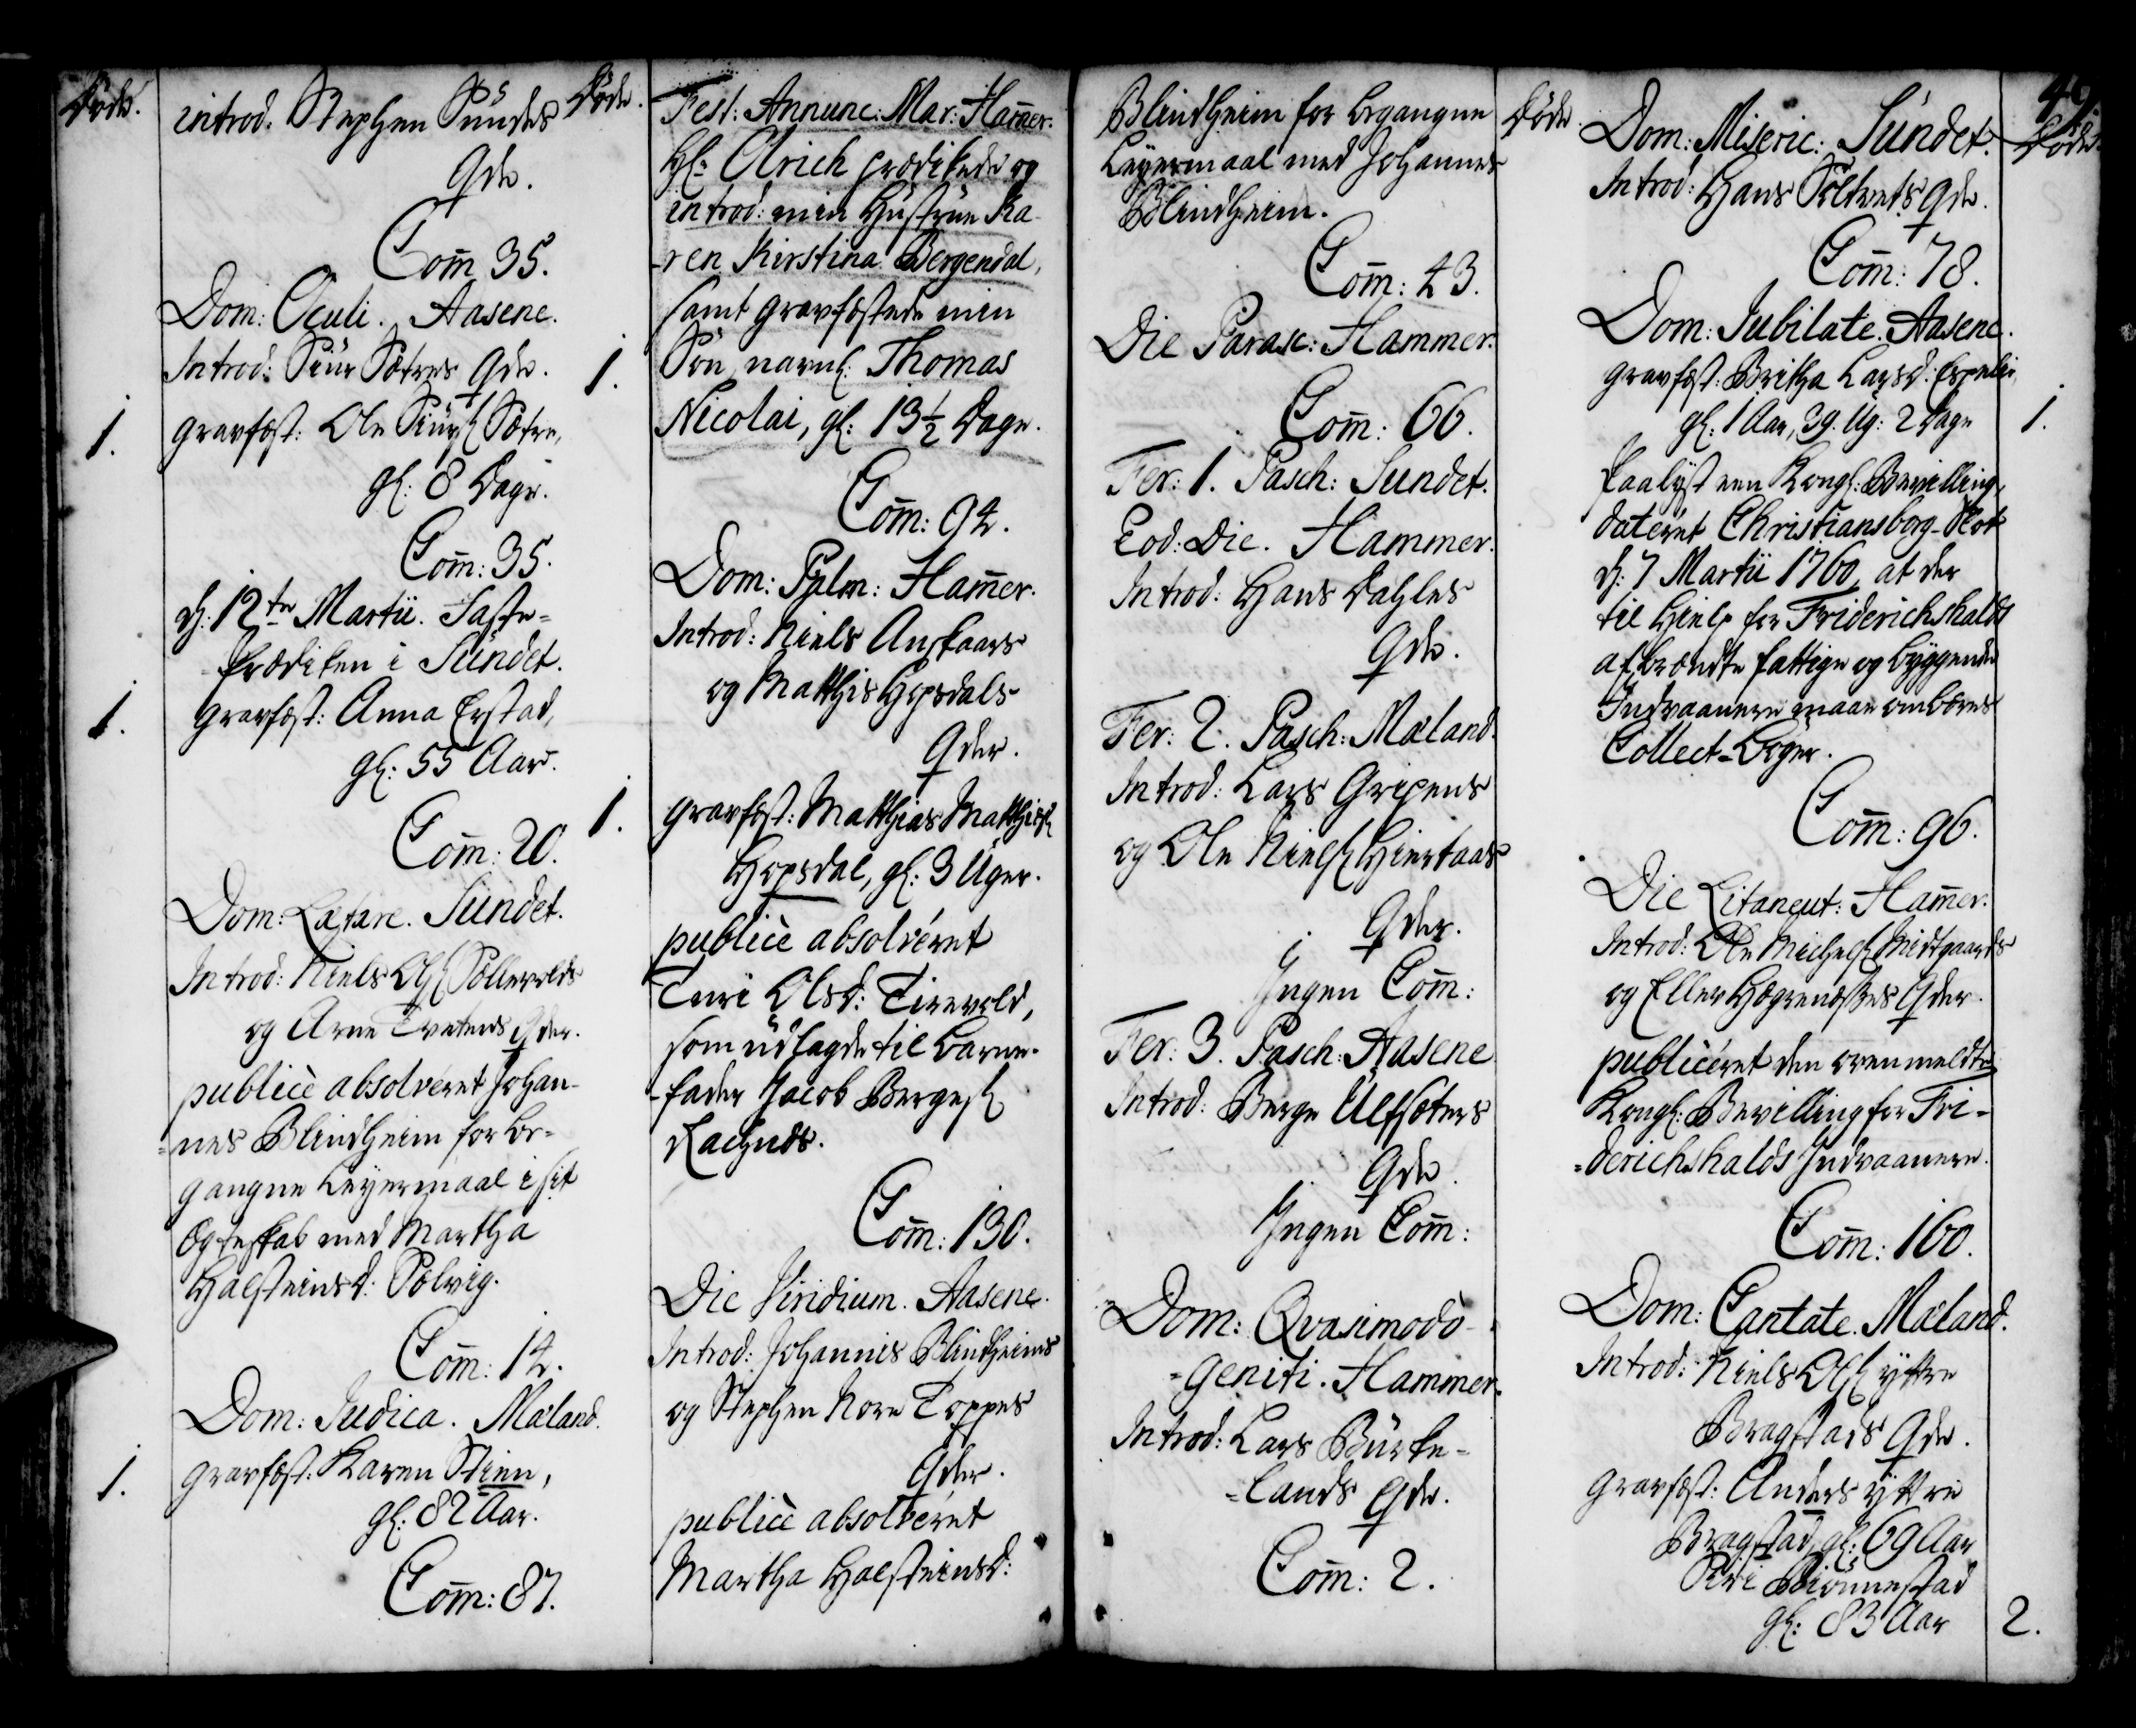 Døde.
introd. Stephen Sundes
Qde.
Com̄ 35.
Dom: Oculi. Aasene.
Introd: Siur Sætres Qde.
1.
gravfæst: Ole Siurs: Sætre,
gl: 8 Dage.
Com̄: 35.
d: 12te Martii. Faste-
prædiken i Sundet.
1.
gravfæst: Anna Erstad,
gl: 55 Aar.
Com̄: 20.
Dom: Lætare. Sundet.
Introd: Niels Ols:
og Arne Tvetens Qder.
publicè absolveret Johan-
=nes Blindheim for be-
gangne Leyermaal i sit
Egteskab med Martha
Halsteinsd: Solvig.
Com̄: 14.
Dom: Judica. Mæland.
1.
gravfæst: Karen Stien,
gl: 82 Aar.
Com̄: 87.
Døde.
Fest: Annunc: Mar: Ham̄er.
Hl: Olrich prædikede og
introd: min Hustrue Ka-
-ren Kirstina Bergendal,
samt gravfæstede min
1.
Søn, navnl: Thomas
Nicolai, gl: 13½ Dage.
Com̄: 94.
Dom: Palm: Ham̄er.
Introd: Niels
og Matthis Hopsdals
Qder.
1.
gravfæst: Matthias Matthiæs:
Hopsdal, gl: 3 Uger.
publicè absolveret
Turi Olsd: Tirevold,
som udlagde til Barne-
-fader Jacob Berges:
Com̄: 130.
Die Viridium. Aasene.
Introd: Johannis Blindheims
og Stephen Nore Toppes
Qder.
publicè absolveret
Martha Halsteinsd:
Blindheim for begangne
Leyermaal med Johannes
Blindheim.
Com̄: 43.
Die Parasc: Hammer.
Com̄: 66.
Fer: 1. Pasch: Sundet.
Eod: Die. Hammer.
Introd: Hans Dahles
Qde.
Fer: 2. Pasch: Mæland.
Introd: Lars Gripens
og Ole Niels: Hiertaas
Qder.
Ingen Com̄:
Fer: 3. Pasch: Aasene
Introd: Berge Ulfsæters
Qde.
Ingen Com̄:
Dom: Qvasimodo-
=geniti. Hammer.
Introd: Lars Burke-
=lands Qde.
Com̄: 2.
Døde
49.
Dom: Miseric: Sundet.
Døde.
Introd: Hans Soltvets Qde.
Com̄: 78.
Dom: Jubilate. Aasene.
gravfæst: Britha Larsd: Espelie,
gl: 1 Aar, 39. Ug: 2 Dage
1.
Paalyst een Kongl: Bevilling,
dateret Christiansborg-Slot
d: 7 Martii 1760, at der
til Hielp for Friderichshalds
afbrændte fattige og byggende
Indvaanere maae ombæres
Collect-Bøger.
Com̄: 96.
Die Litaneut: Ham̄er.
Introd: Ole Michels: Midtgaards
og Qder.
publicéret den ovenmeldte
Kongl: Bevilling for Fri-
=derichshalds Indvaanere.
Com̄: 160.
Dom: Cantate. Mæland.
Introd: Niels Ols: yttre
Bragstads Qde.
gravfæst: Anders yttre
Bragstad, gl: 69 Aar
Siri Biönnestad
gl: 83 Aar
2.